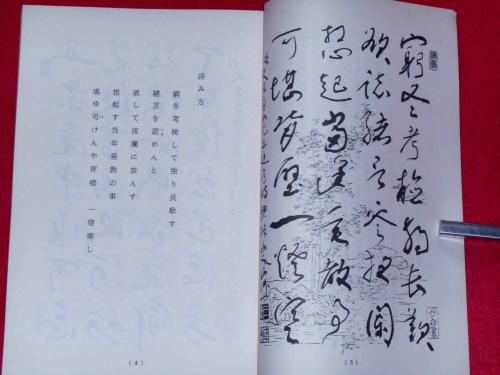 窮冬考檢獨長歎
欲誌緒言參夜闌
想起當年垂教事
可堪背壁一燈寒
(3)
読み方
窮冬考検して独り長歎す
緒言を認めんと
欲して夜蘭に参んす
想起す当年垂教の事
堪ゆ可けんや背壁 一燈寒し
(4)